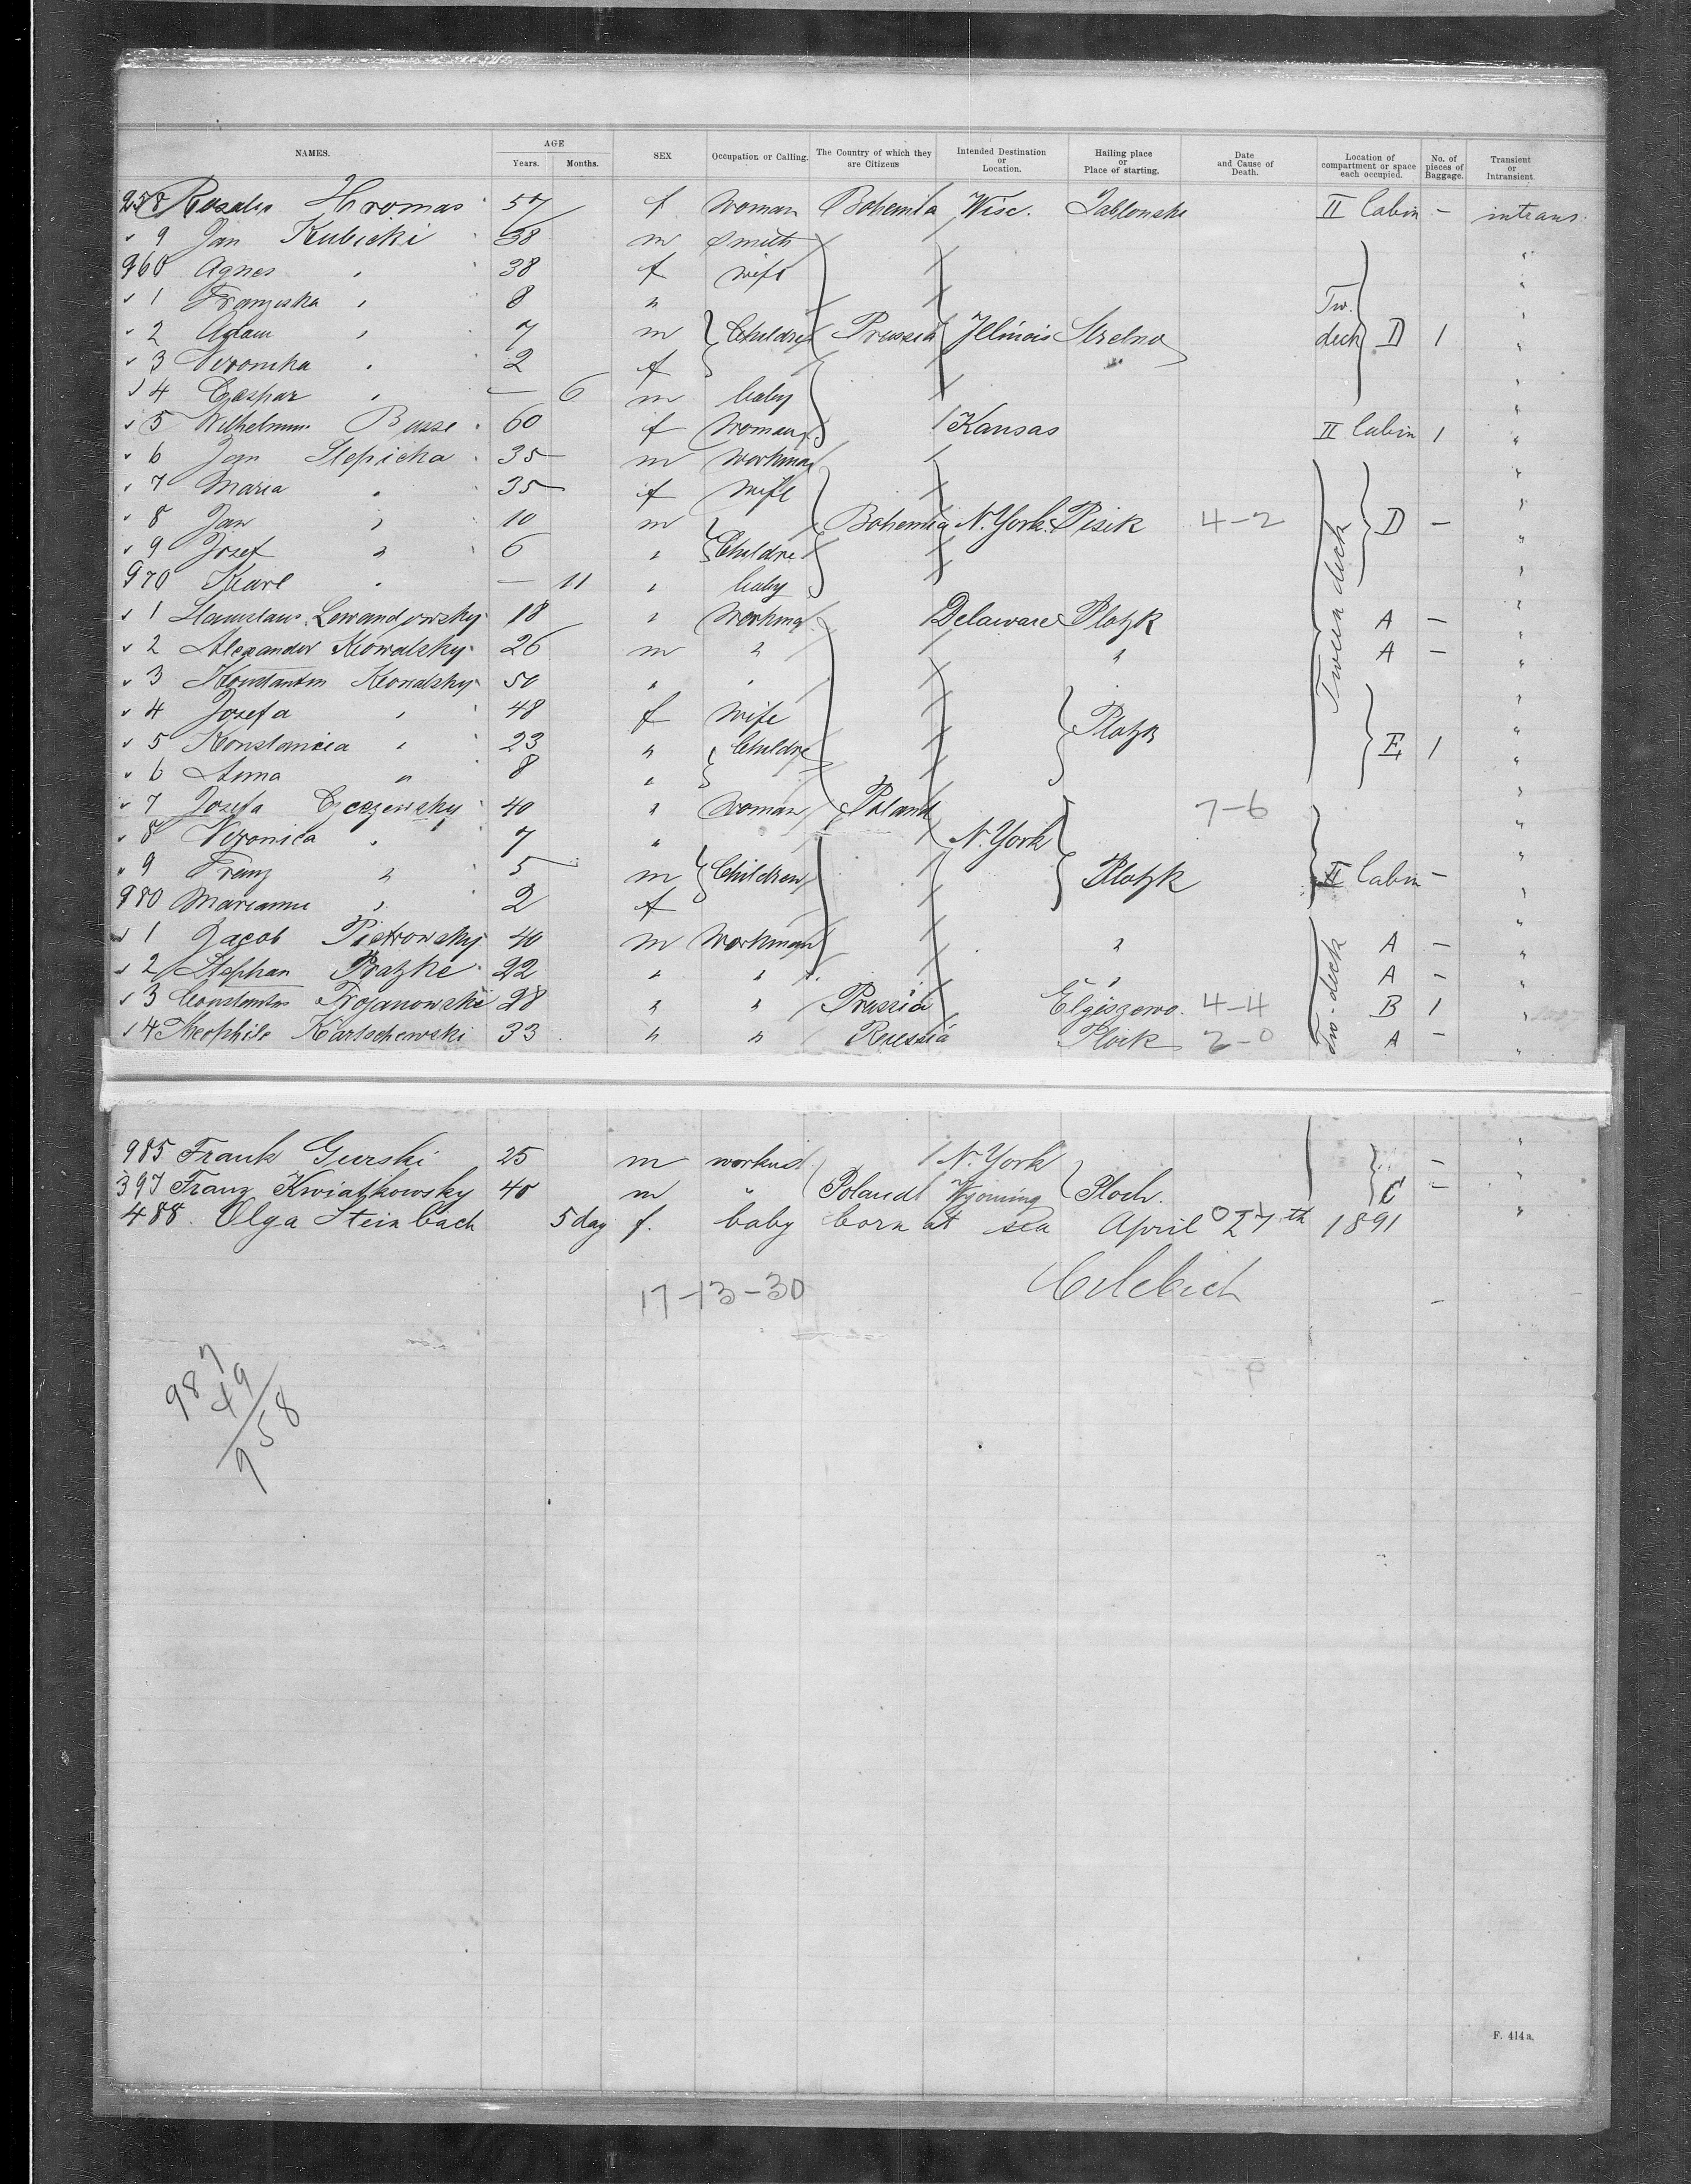 NAMES. AGE Years. Months. SEX Occupation or Calling. The Country of which they are Citizens Intended Destination or Location. Hailing place or Place of starting. Date and Cause of Death. Location of compartment or space each occupied. No. of pieces of Baggage. Transient or Intransient.
958 Rosalia Hromas 57 f woman Bohemia Wisc. Jablonske II Cabin – intrans.
" 9 Jan Kubicki 38 m smith "
960 Agnes " 38 f wife "
" 1 Franziska " 8 " Tw. "
" 2 Adam " 7 m Children Prussia Illinois Strelno deck D 1 "
" 3 Veronika " 2 f "
" 4 Caspar " – 6 m baby "
" 5 Wilhelmine Busse 60 f woman Kansas II Cabin 1 "
" 6 Jan Slepicka 35 m workman "
" 7 Maria " 35 f wife "
" 8 Jan " 10 m Bohemia N. York. Pisek 4-2 D – "
" 9 Josef " 6 " Childre "
970 Karl " – 11 " baby "
" 1 Stanislaus Lewandowsky 18 " workma Delaware Plotzk Tween deck A – "
" 2 Alexander Kowalsky 26 m " " A – "
" 3 Konstantin Kowalsky 50 " " "
" 4 Josefa " 48 f wife Plotzk "
" 5 Konstancia " 23 " Childre E 1 "
" 6 Anna " 8 " "
" 7 Josefa 40 " woman Poland 7-6 "
" 8 Veronica " 7 " N. York "
" 9 Franz " 5 m Children Plotzk II Cabin – "
980 Marianne " 2 f "
" 1 Jacob Pietrowsky 40 m workman " A – "
" 2 Stephan Pratzke 22 " " " Tw-deck A – "
" 3 Constantin Trojanowski 28 " " Prussia Elgiszewo. 4-4 B 1 "
" 4 Theophile Kartschewski 33 " " Russia Plock 2-0 A – "
985 Frank Gurski 25 m N. York – "
397 Franz Kwiatkowsky 40 m " Poland Wyoming Ploch. C – "
488. Olga Steinbach 5 day f. baby born at sea April 27th 1891 "
17-13-30
987
49
958
F. 414a.